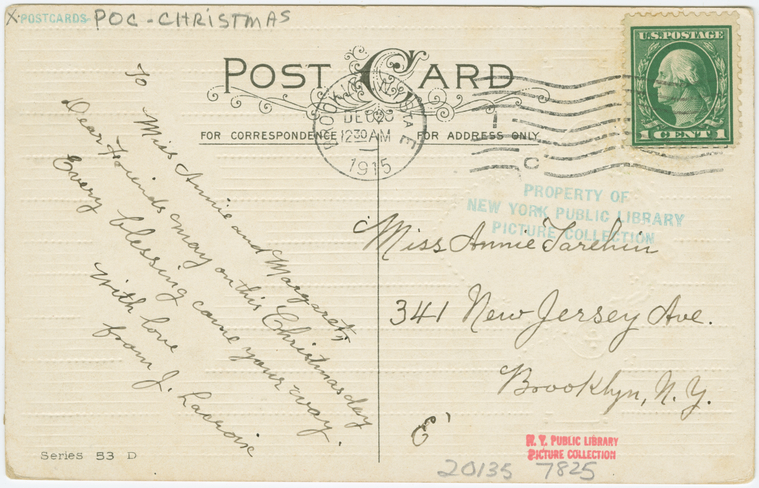 X-POSTCARDS POC-CHRISTMAS
POST CARD
U.S. POSTAGE
1 CENT 1
BROOKLYN, N.Y.
DEC 23
12 30 AM
1915
FOR CORRESPONDENCE
FOR ADDRESS ONLY
To
Miss Annie and Margaret,
Dear Friends may on this Christmas day
Every blessing come your way.
With love
from J. Lacroix
PROPERTY OF
NEW YORK PUBLIC LIBRARY
PICTURE COLLECTION
Miss Annie
341 New Jersey Ave.
Brooklyn, N.Y.
Series 53 D
N. Y. PUBLIC LIBRARY
PICTURE COLLECTION
20135 7825